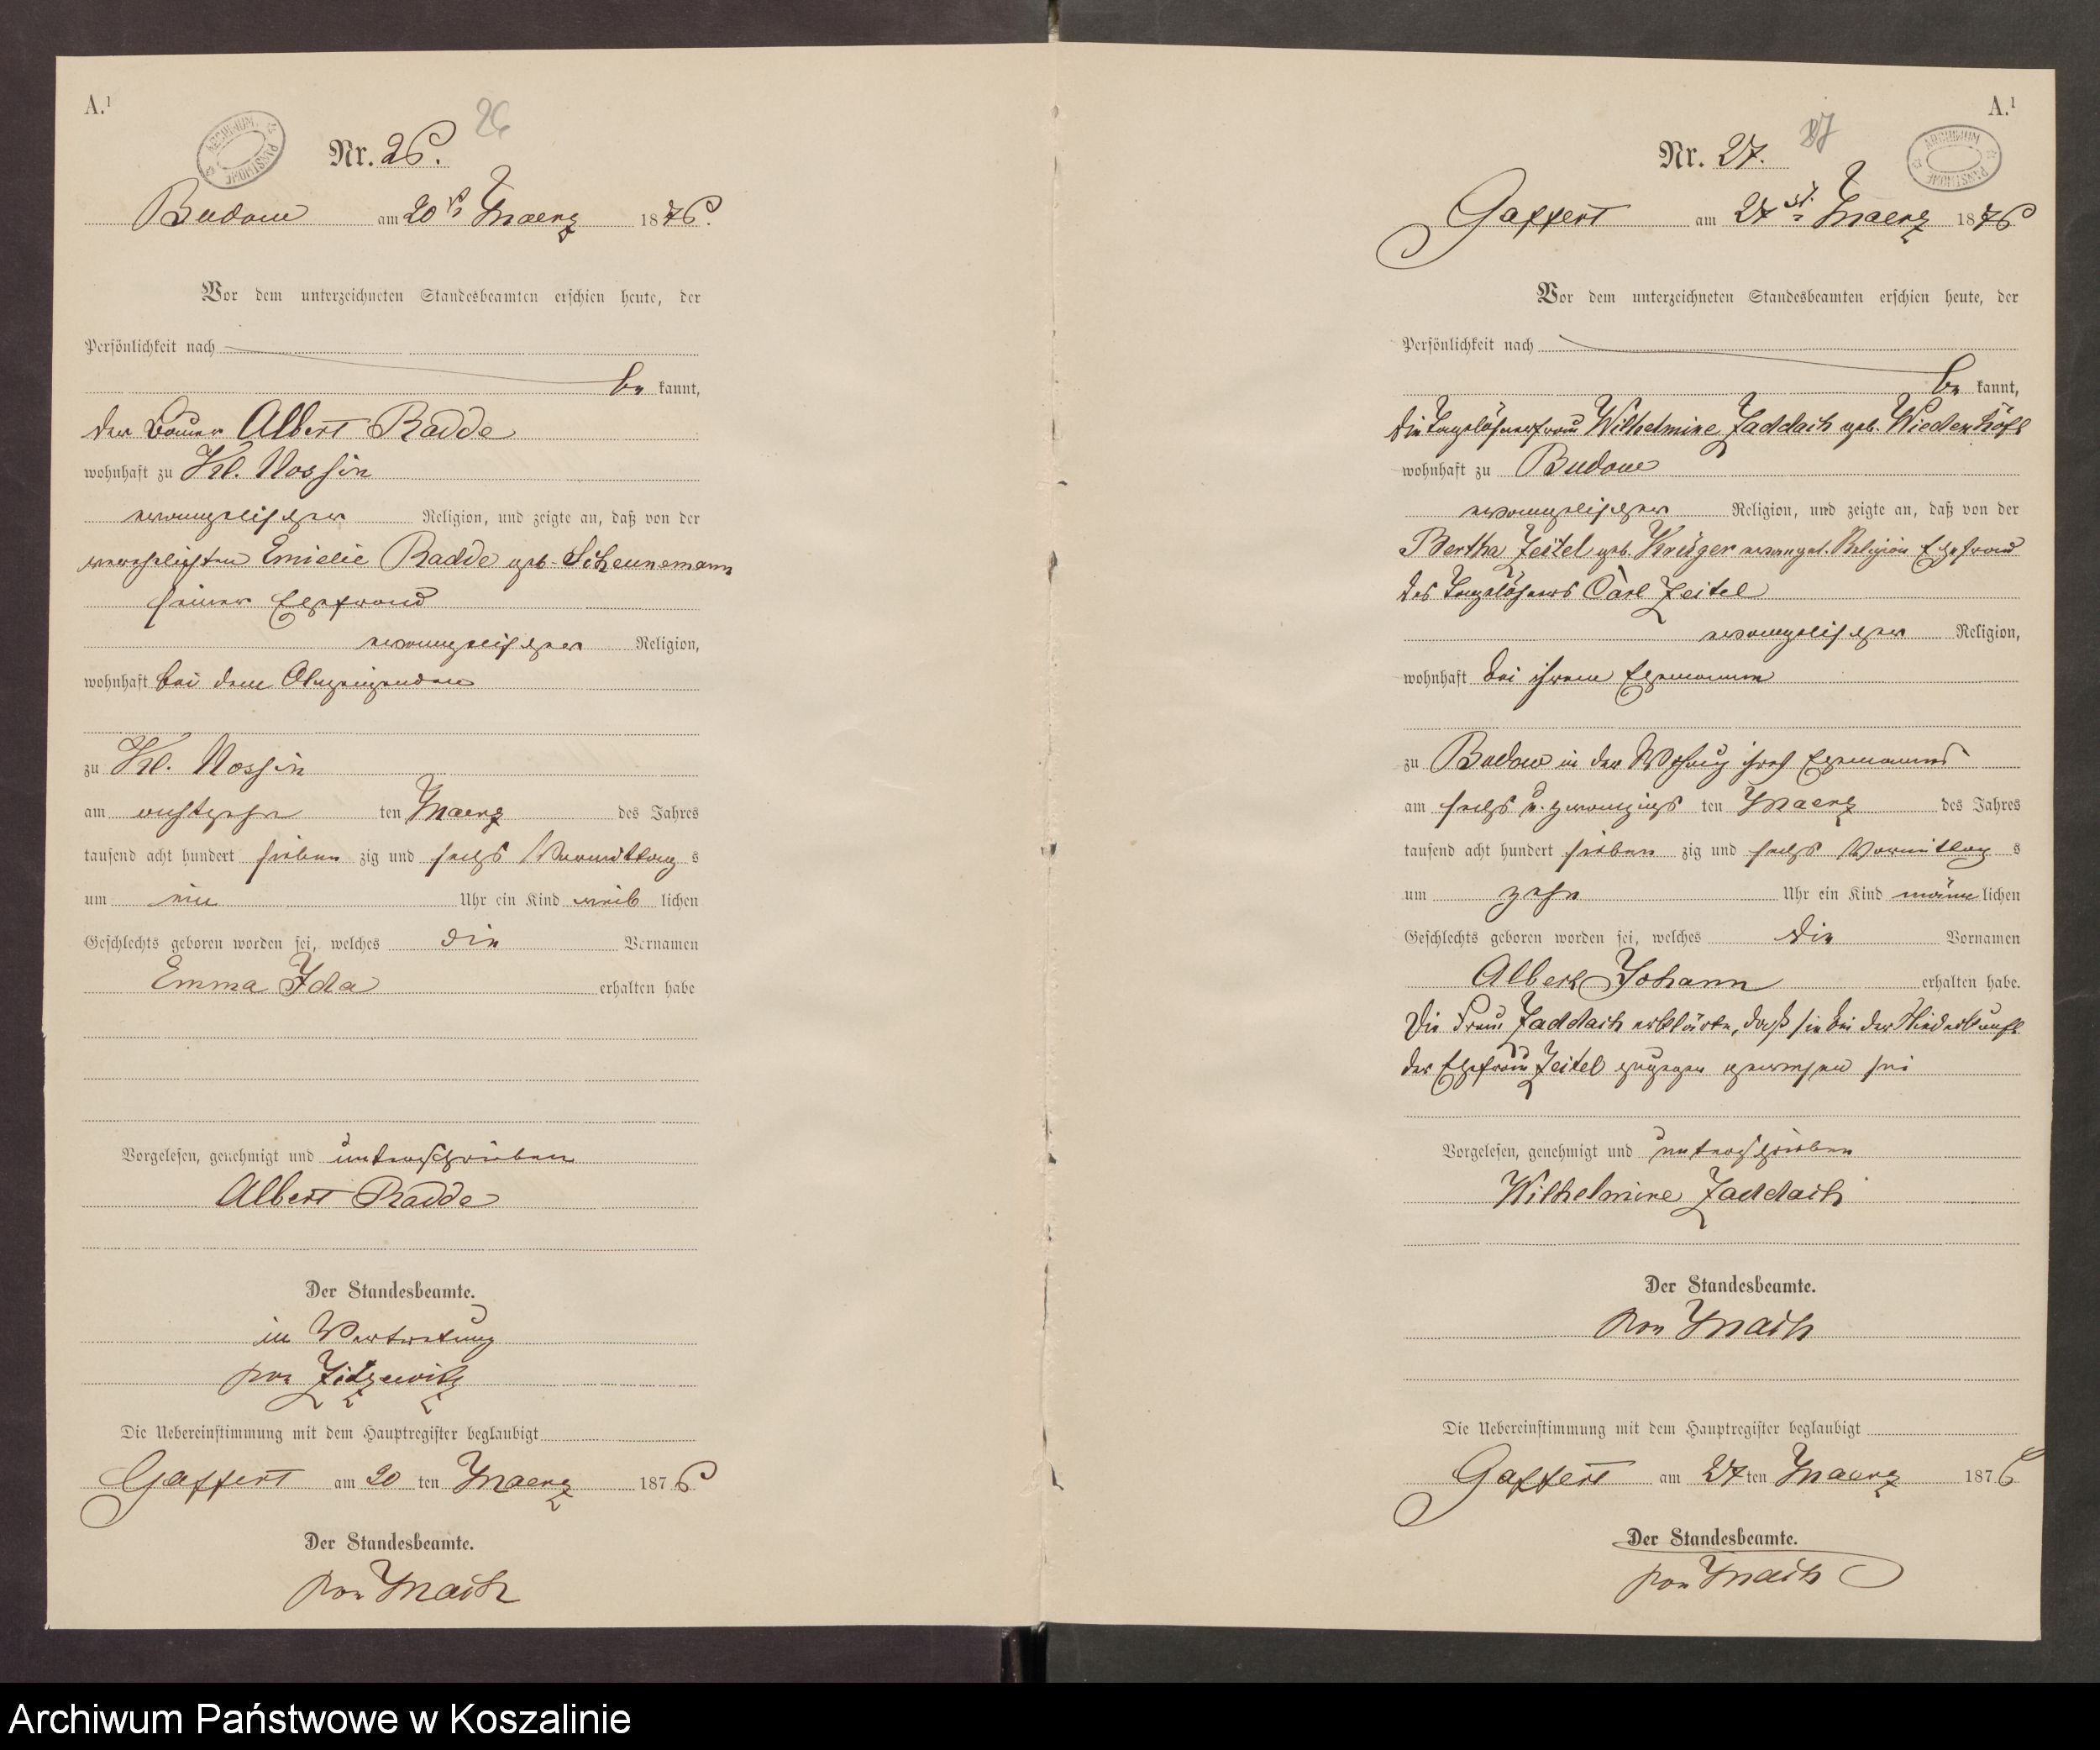 A.¹
ARCHIWUM PAŃSTWOWE
26
Nr. 26.
Budow am 20 ts Maerz 1876.
Vor dem unterzeichneten Standesbeamten erschien heute, der
Persönlichkeit nach
be kannt,
der Bauer Albert Radde
wohnhaft zu Kl. Nossin
evangelischer Religion, und zeigte an, daß von der
verehelichten Emielie Radde geb. Scheunemann
seiner Ehefrau
evangelischer Religion,
wohnhaft bei dem Anzeigenden
zu Kl. Nossin
am achtzehn ten Maerz des Jahres
tausend acht hundert sieben zig und sechs Vormittag s
um ein Uhr ein Kind weib lichen
Geschlechts geboren worden sei, welches die Vornamen
Emma Ida erhalten habe
Vorgelesen, genehmigt und unterschrieben
Albert Radde
Der Standesbeamte.
in Vertretung
von Zitzewitz
Die Uebereinstimmung mit dem Hauptregister beglaubigt
Gaffert am 20 ten Maerz 1876
Der Standesbeamte.
von
A.¹
ARCHIWUM PAŃSTWOWE
27
Nr. 27.
Gaffert am 27 Maerz 1876
Vor dem unterzeichneten Standesbeamten erschien heute, der
Persönlichkeit nach
be kannt,
die Tagelöhnerfrau Wilhelmine Zaddach geb. Wiedenhöft
wohnhaft zu Budow
evangelischer Religion, und zeigte an, daß von der
Bertha Zeitel geb. Krüger evangel. Religion Ehefrau
des Tagelöhners Carl Zeitel
evangelischer Religion,
wohnhaft bei ihrem Ehemanne
zu Budow in der Wohnung ihres Ehemannes
am sechs u. zwanzigs ten Maerz des Jahres
tausend acht hundert sieben zig und sechs Vormittag s
um zehn Uhr ein Kind männ lichen
Geschlechts geboren worden sei, welches die Vornamen
Albert Johann erhalten habe.
Die Frau Zaddach erklärte, daß sie bei der Niederkunft
der Ehefrau Zeitel zugegen gewesen sei
Vorgelesen, genehmigt und unterschrieben
Wilhelmine Zaddach
Der Standesbeamte.
von
Die Uebereinstimmung mit dem Hauptregister beglaubigt
Gaffert am 27 ten Maerz 1876
Der Standesbeamte.
von
Archiwum Państwowe w Koszalinie